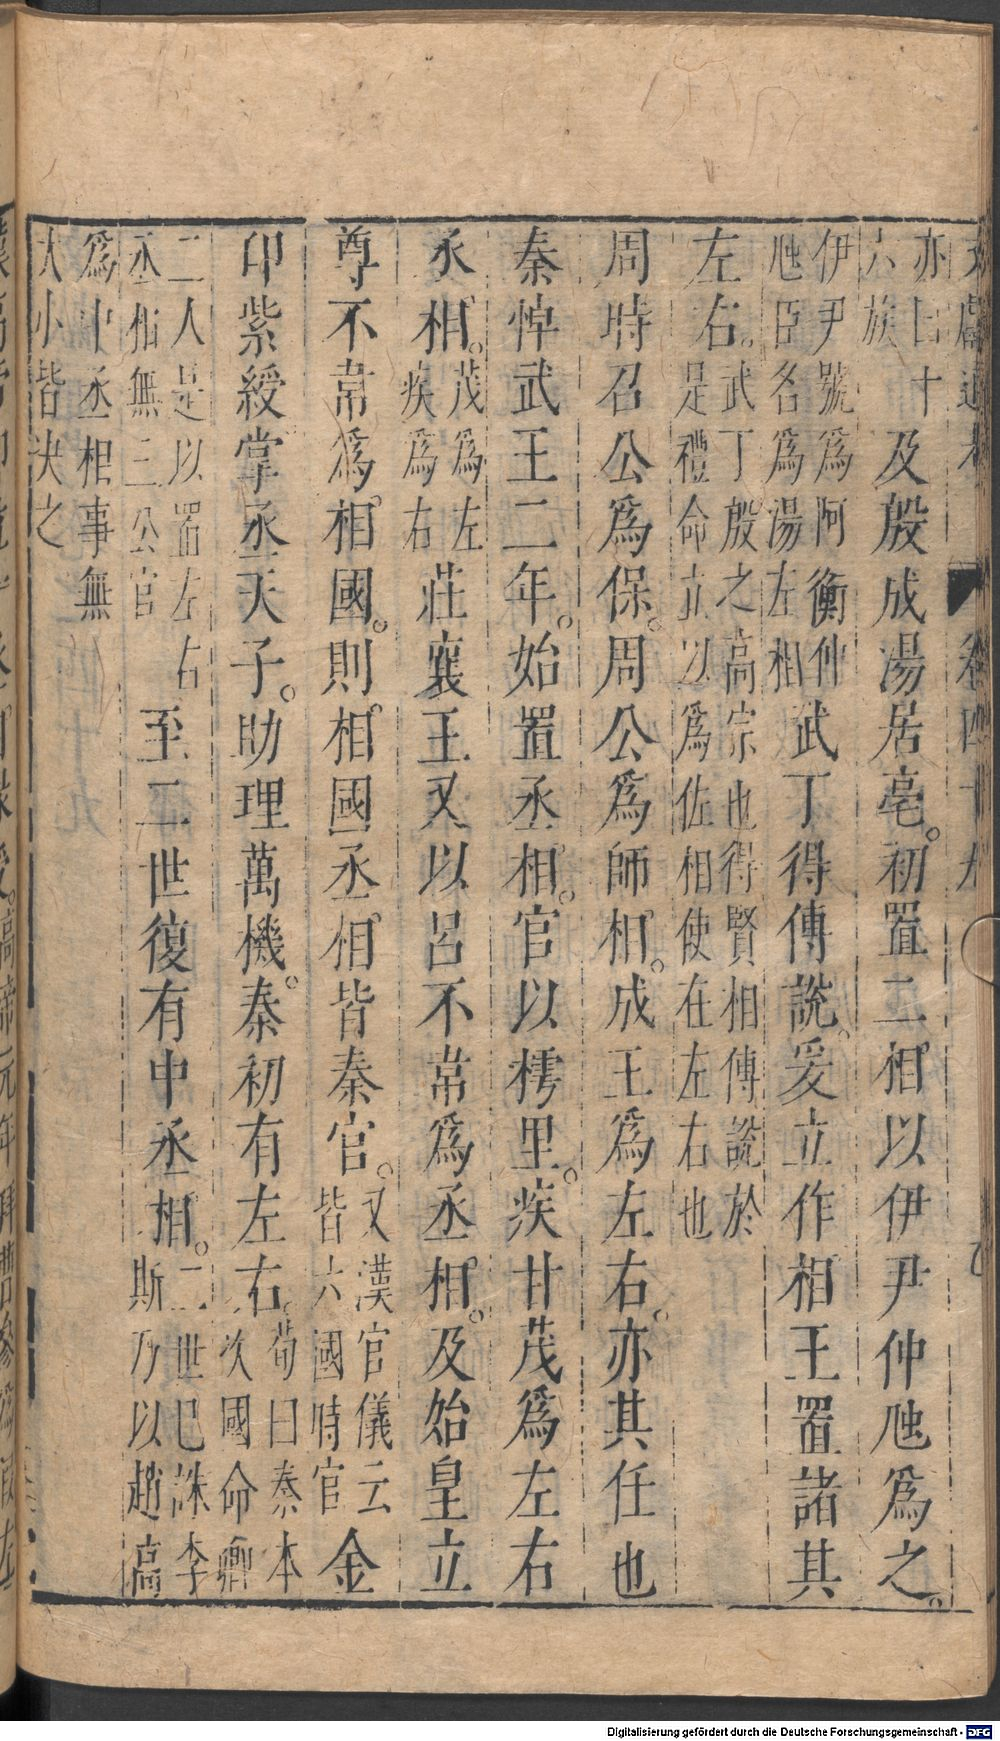 卷四十九
亦曰十
六族
及殷成湯居亳。初置二相以伊尹仲虺爲之。
伊尹號爲阿衡仲
虺臣名爲湯左相
武丁得傅說。爰立作相王置諸其
左右。
武丁殷之高宗也得賢相傅說於
是禮命立以爲佐相使在左右也
周時召公爲保。周公爲師相。成王爲左右。亦其任也
秦悼武王二年。始置丞相。官以樗里。疾甘茂爲左右
丞相。
茂爲左
疾爲右
莊襄王又以呂不韋爲丞相。及始皇立
尊不韋爲相國。則相國丞相皆秦官。
又漢官儀云
皆六國時官
金
印紫綬掌丞天子。助理萬機。秦初有左右。
荀曰秦本
次國命卿
二人是以置左右
丞相無三公官
至二世復有中丞相。
二世已誅李
斯乃以趙高
爲中丞相事無
大小皆决之
Digitalisierung gefördert durch die Deutsche Forschungsgemeinschaft - DFG